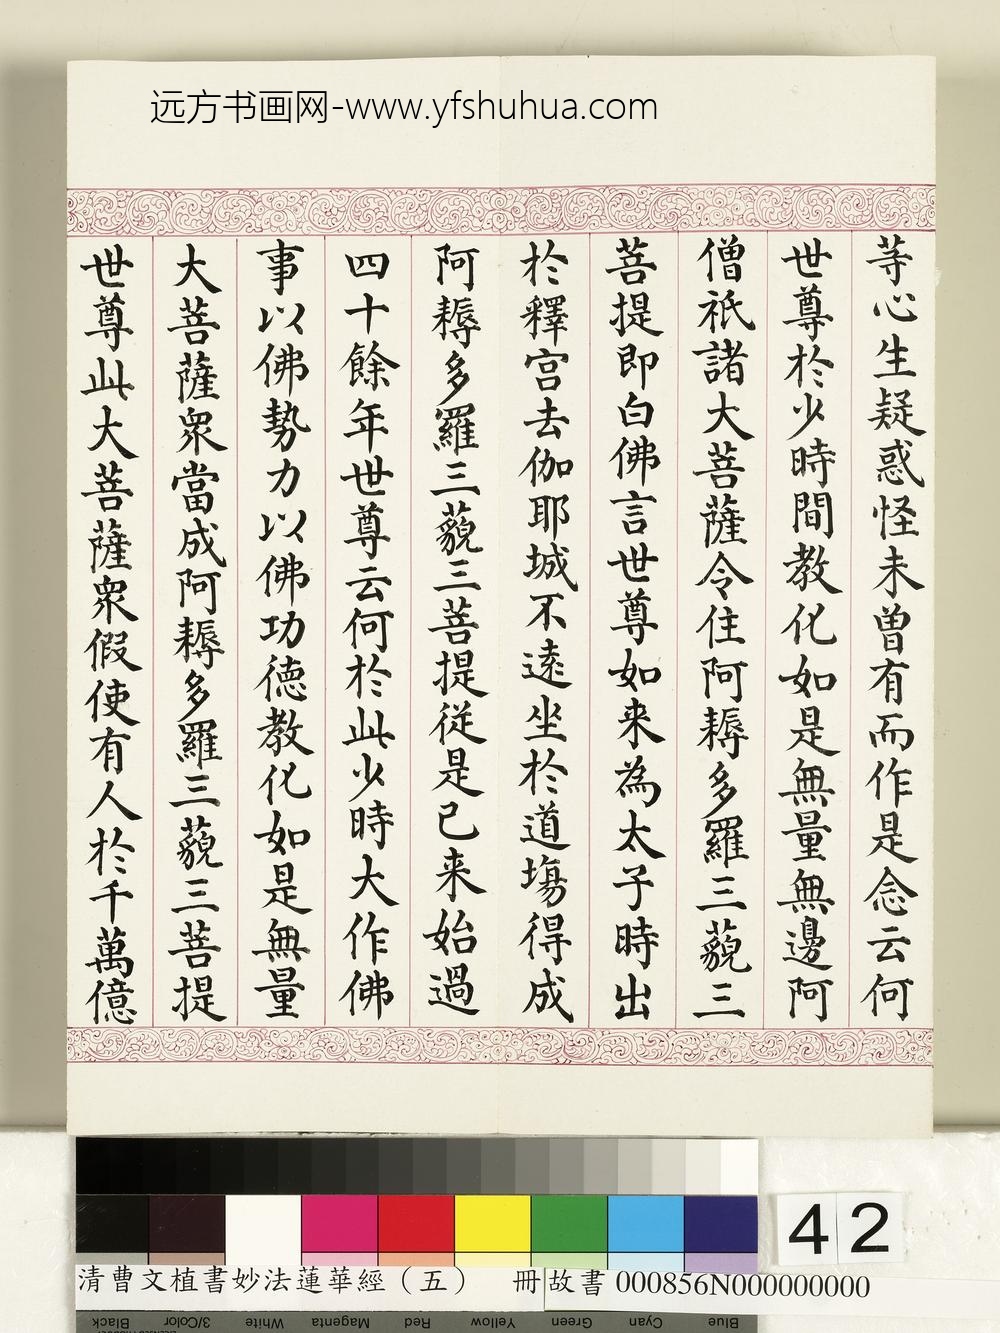 远方书画网-www.yfshuhua.com
等心生疑惑怪未曾有而作是念云何
世尊於少時間教化如是無量無邊阿
僧祇諸大菩薩令住阿耨多羅三藐三
菩提即白佛言世尊如来為太子時出
於釋宮去伽耶城不遠坐於道場得成
阿耨多羅三藐三菩提從是已来始過
四十餘年世尊云何於此少時大作佛
事以佛勢力以佛功德教化如是無量
大菩薩眾當成阿耨多羅三藐三菩提
世尊此大菩薩眾假使有人於千萬億
42
清曹文植書妙法蓮華經（五） 冊故書000856N000000000
Black 3/Color White Magenta Red Yellow Green Cyan Blue